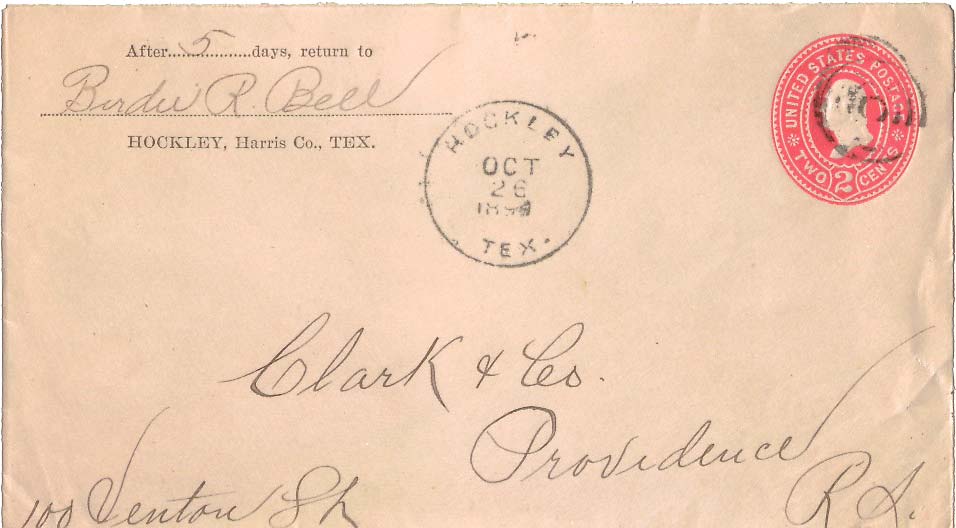 After.....5.....days, return to
Birdie R. Bell
HOCKLEY, Harris Co., TEX.
HOCKLEY
OCT
26
TEX.
UNITED STATES POSTAGE
TWO 2 CENTS
Clark & Co.
Providence
R I.
100